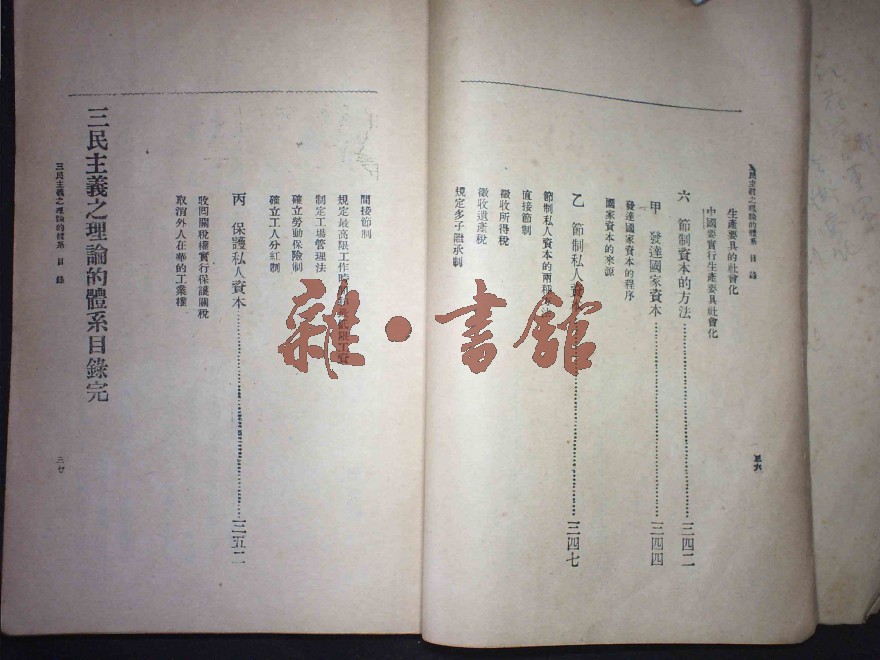 三民主義之理論的體系 目錄
三六
生產要具的社會化
中國要實行生產要具社會化
六 節制資本的方法 三四二
甲 發達國家資本 三四四
發達國家資本的程序
國家資本的來源
乙 節制私人資 三四七
節制私人資本的兩種
直接節制
徵收所得稅
徵收遺產稅
規定多子繼承制
間接節制
規定最高限工作時間
制定工場管理法
確立勞動保險制
確立工人分紅制
丙 保護私人資本 三五二
收回關稅權實行保護關稅
取消外人在華的工業權
三民主義之理論的體系目錄完
三民主義之理論的體系 目錄
三七
雜·書館